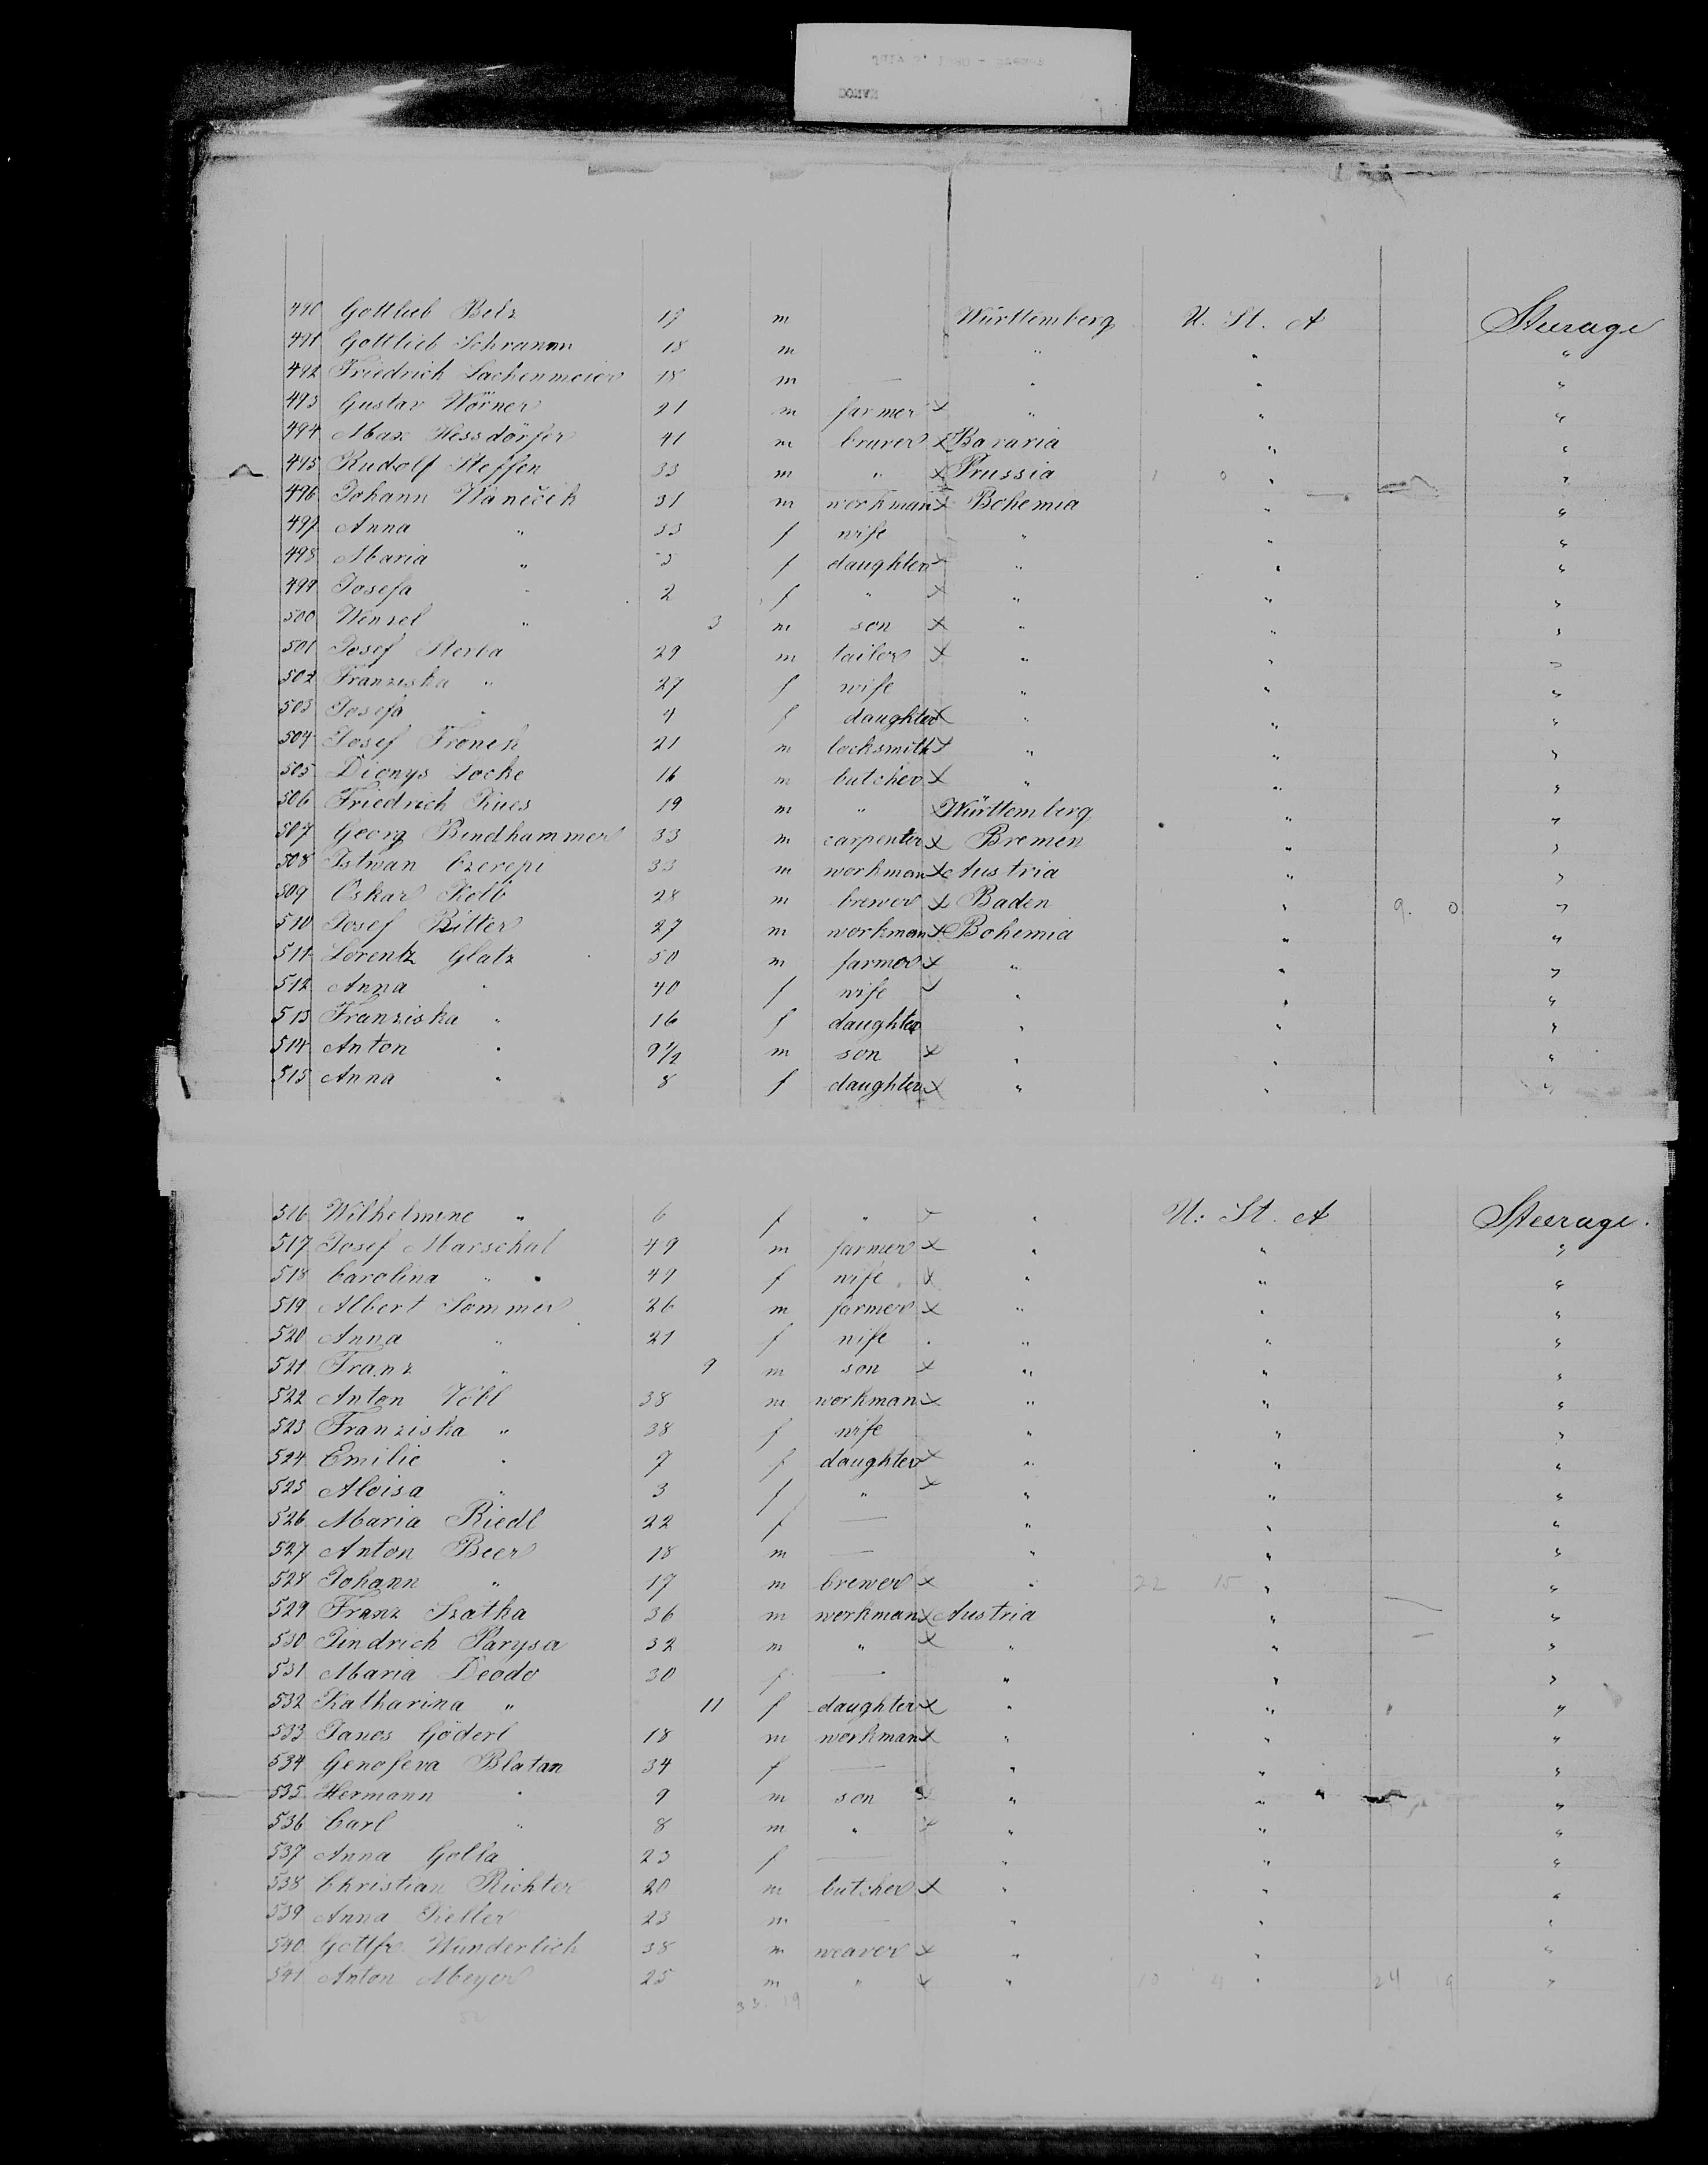 490 Gottlieb Betz 17 m Württemberg U. St. A Steerage
491 Gottlieb Schramm 18 m " " "
492 Friedrich Lachenmeier 18 m — " " "
493 Gustav Wörner 21 m farmer x " " "
494 Max Hessdörfer 41 m bruver x Bavaria " "
495 Rudolf Steffen 33 m " x Prussia 1 0 " "
496 Johann Wáneček 31 m workman x Bohemia " "
497 Anna " 33 f wife " " "
498 Maria " 5 f daughter x " " "
499 Josefa " 2 f " x " " "
500 Wenzel " 3 m son x " " "
501 Josef Sterba 29 m tailor x " " "
502 Franziska " 27 f wife " " "
503 Josefa " 4 f daughter x " " "
504 Josef Fronek 21 m locksmith x " " "
505 Dionys Locke 16 m butcher x " " "
506 Friedrich Kues 19 m " x Württemberg " "
507 Georg Bindhammer 33 m carpenter x Bremen " "
508 Istwan Czerepi 33 m workman x Austria " "
509 Oskar Kolb 28 m brewer x Baden " 9. 0 "
510 Josef Ritter 27 m workman x Bohemia " "
511 Lorentz Glatz 50 m farmer x " " "
512 Anna " 40 f wife " " "
513 Franziska " 16 f daughter " " "
514 Anton " 9½ m son x " " "
515 Anna " 8 f daughter x " " "
516 Wilhelmine " 6 f " x " U. St. A Steerage.
517 Josef Marschal 49 m farmer x " " "
518 Carolina " 49 f wife x " " "
519 Albert Sommer 26 m farmer x " " "
520 Anna " 21 f wife " " "
521 Franz " 9 m son x " " "
522 Anton Völl 38 m workman x " " "
523 Franziska " 38 f wife " " "
524 Emilie " 7 f daughter x " " "
525 Aloisa " 3 f " x " " "
526 Maria Riedl 22 f — " " "
527 Anton Beer 18 m — " " "
528 Johann " 17 m brewer x " 22 15 " "
529 Franz Szatka 36 m workman x Austria " "
530 Jindrich Parysa 32 m " x " " "
531 Maria Deodo 30 f — " " "
532 Katharina " 11 f daughter x " " "
533 Janos Göderl 18 m workman x " " "
534 Genofeva Blatan 34 f — " " "
535 Hermann " 9 m son x " " "
536 Carl " 8 m " x " " "
537 Anna Golla 23 f — " " "
538 Christian Richter 20 m butcher x " " "
539 Anna Keller 23 m — " " "
540 Gottfr. Wunderlich 38 m weaver x " " "
541 Anton Meyer 25 m " x " 10 4 " 24 19 "
33. 19